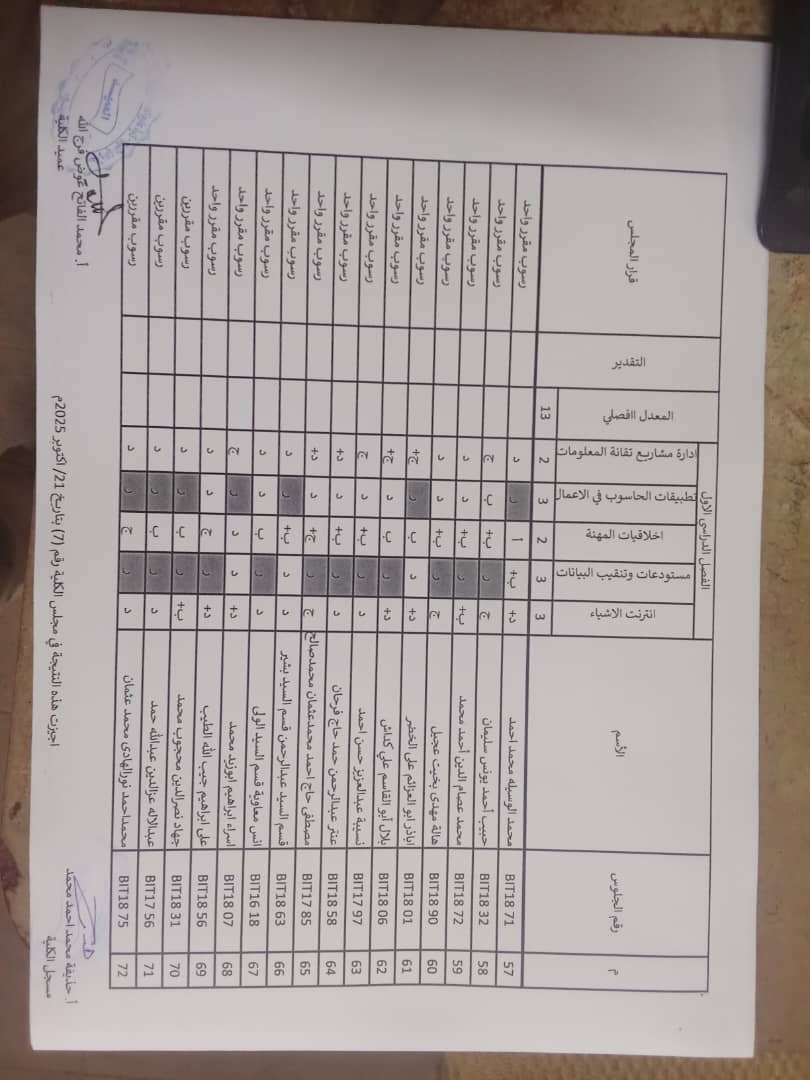 الفصل الدراسي الاول
م رقم الجلوس الأسم انترنت الاشياء مستودعات وتنقيب البيانات اخلاقيات المهنة تطبيقات الحاسوب في الاعمال ادارة مشاريع تقانة المعلومات المعدل الفصلي التقدير قرار المجلس
3 3 2 3 2 13
57 BIT18 71 محمد الوسيله محمد احمد د+ ب+ أ ر د رسوب مقرر واحد
58 BIT18 32 حبيب أحمد يونس سليمان ج ر ب+ ب ج رسوب مقرر واحد
59 BIT18 72 محمد عصام الدين أحمد محمد ب+ ر ب+ د د رسوب مقرر واحد
60 BIT18 90 هالة مهدى بخيت عجيل ج ر ب+ د د رسوب مقرر واحد
61 BIT18 01 اباذر ابو العزائم على الخضر د+ د ب ر ج+ رسوب مقرر واحد
62 BIT18 06 بلال أبو القاسم علي كداش د+ ر ب د ج+ رسوب مقرر واحد
63 BIT17 97 نسيبة عبدالعزيز حسن احمد د ر ب+ د ج رسوب مقرر واحد
64 BIT18 58 عنتر عبدالرحمن حمد حاج فرحان د ر ب+ د د+ رسوب مقرر واحد
65 BIT17 85 مصطفى حاج احمد محمدعثمان محمدصالح ج ر ج+ د د+ رسوب مقرر واحد
66 BIT18 63 قسم السيد عبدالرحمن قسم السيد بشير د د ب+ ر د رسوب مقرر واحد
67 BIT16 18 انس معاوية قسم السيد الولى د ر ب د د رسوب مقرر واحد
68 BIT18 07 اسراء ابراهيم ابوزيد محمد د+ د د ر ج رسوب مقرر واحد
69 BIT18 56 على ابراهيم جيب الله الطيب د+ ر ج د د رسوب مقرر واحد
70 BIT18 31 جهاد نصرالدين محجوب محمد ب+ ر ب ر د رسوب مقررين
71 BIT17 56 عبدالاله عزالدين عبدالله حمد د ر ب ر د رسوب مقررين
72 BIT18 75 محمداحمد نورالهادى محمد عثمان د ر ج ر د رسوب مقررين
اجيزت هذه النتيجة في مجلس الكلية رقم (7) بتاريخ 21/ اكتوبر 2025م
أ. حذيفة محمد احمد محمد
مسجل الكلية
أ. محمد الفاتح عوض فرج الله
عميد الكلية